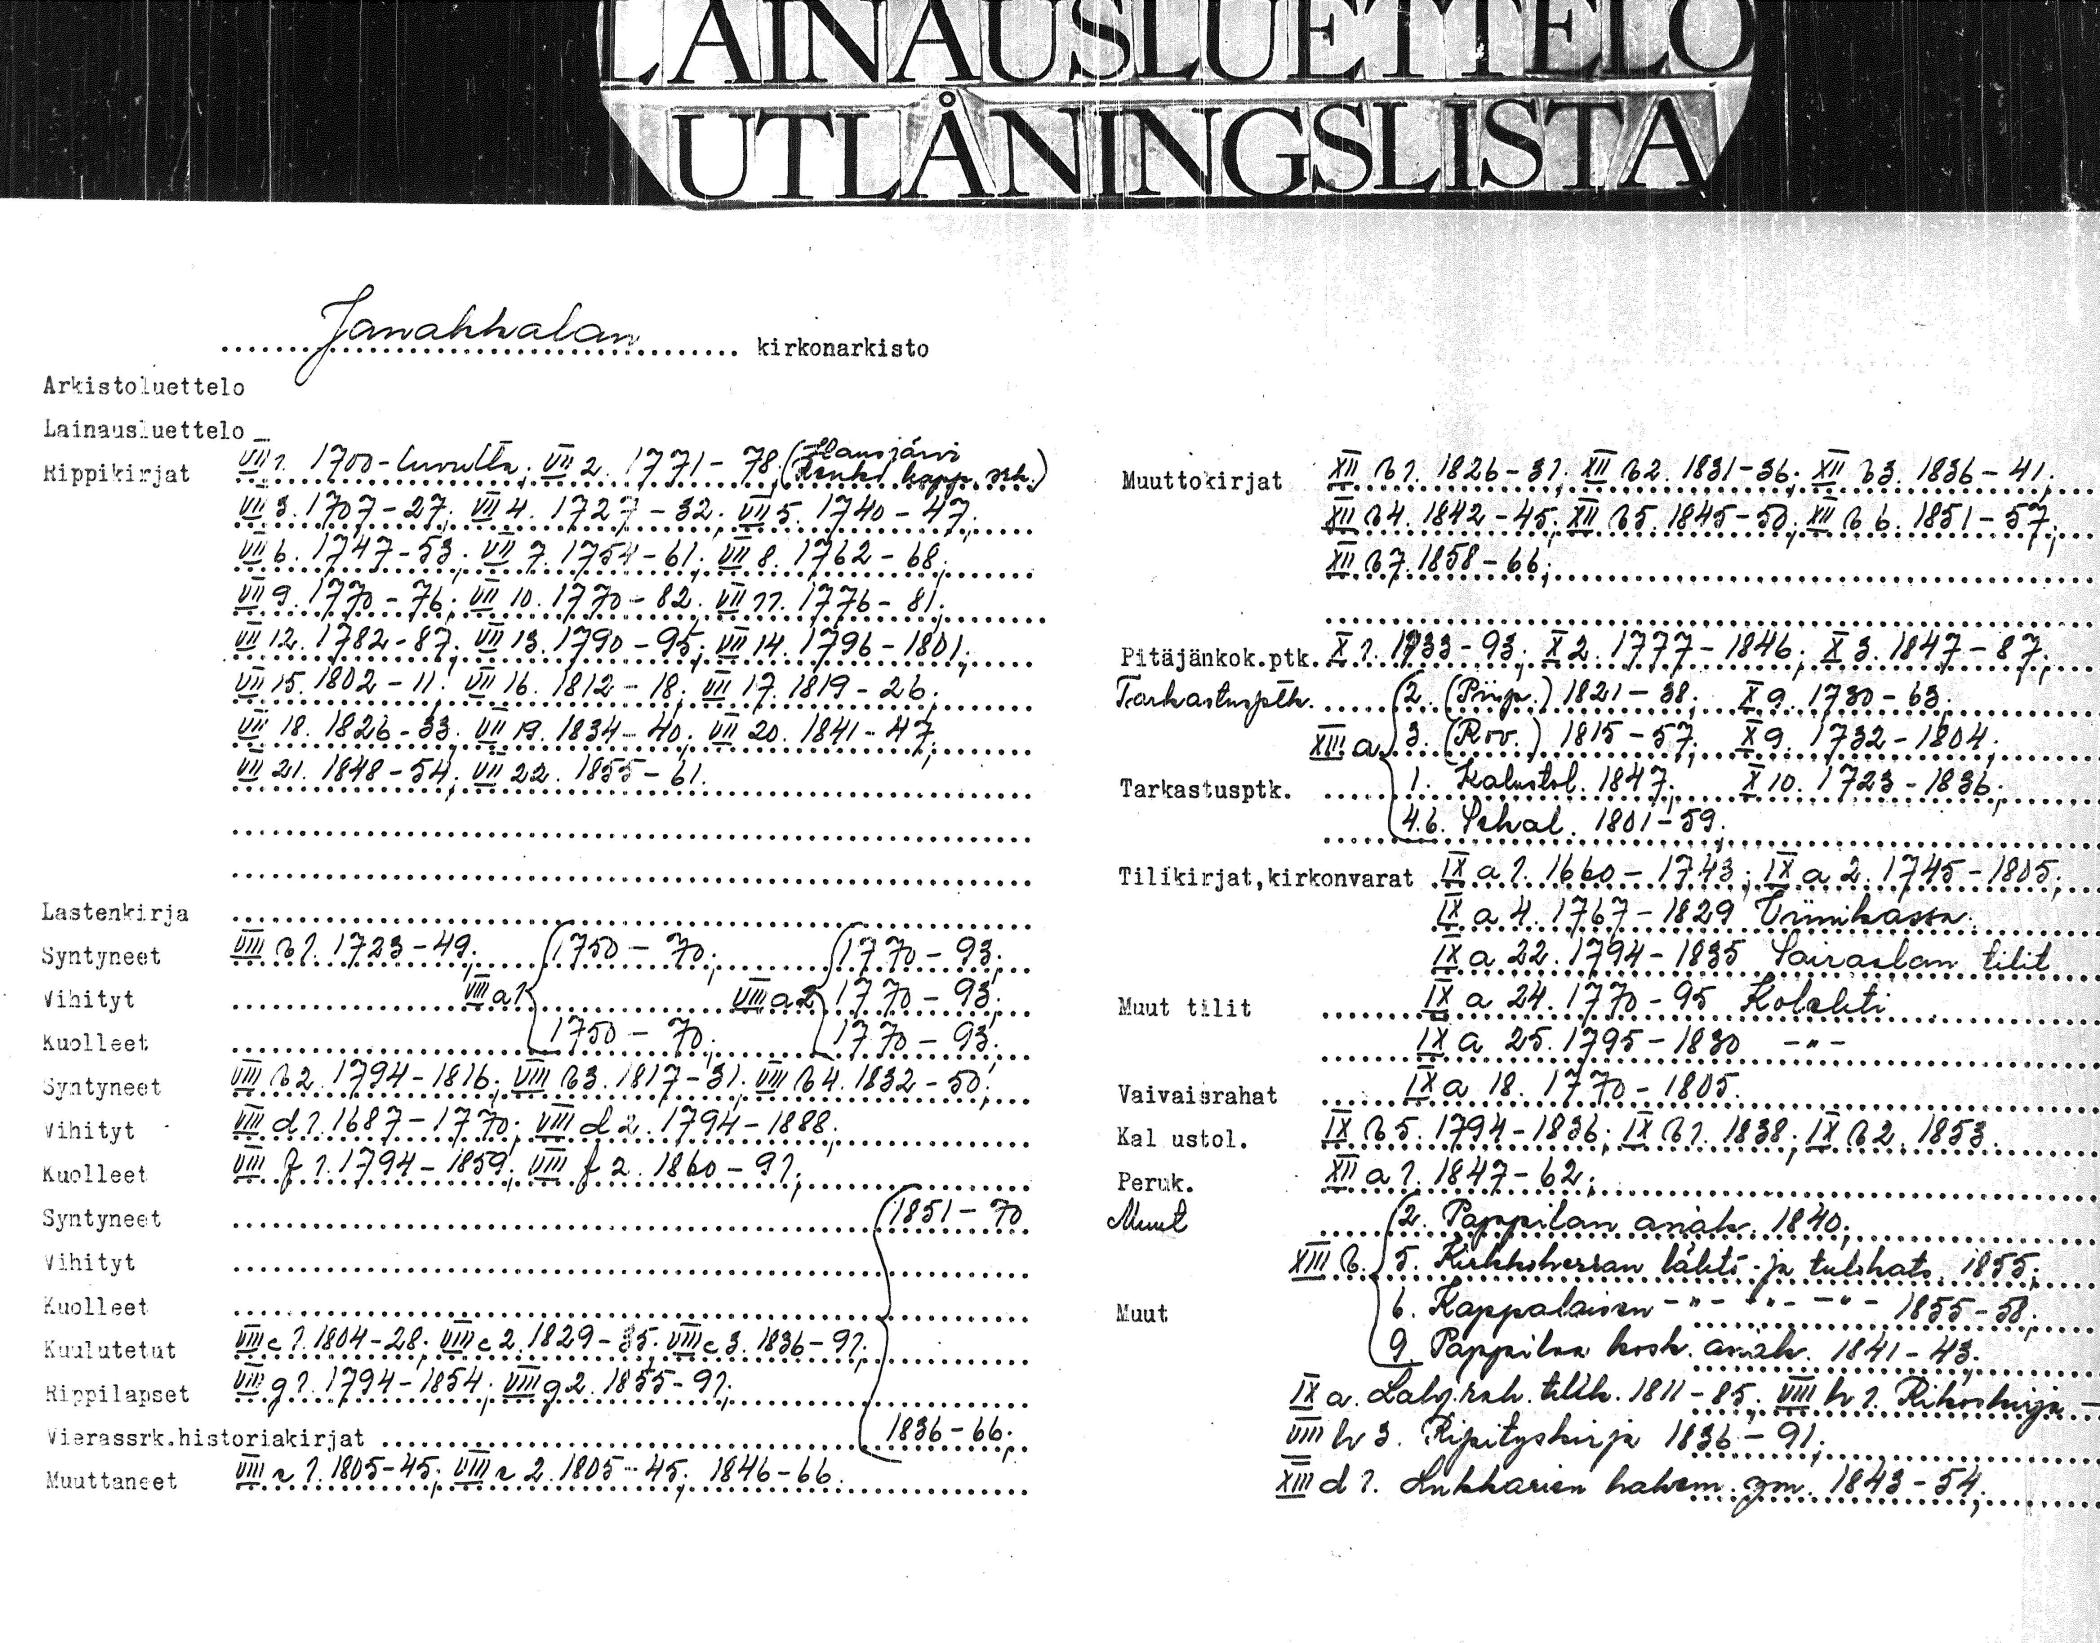 LAINAUSLUETTELO
UTLÅNINGSLISTA
Janakkalan kirkonarkisto
Arkistoluettelo
Lainausluettelo
Rippikirjat VII 1. 1700-luvulta; VII 2. 1771-78 (Hausjärvi kapp. srk.)
VII 3. 1707-27; VII 4. 1727-32; VII 5. 1740-47;
VII 6. 1747-53; VII 7. 1754-61; VII 8. 1762-68;
VII 9. 1770-76; VII 10. 1770-82; VII 11. 1776-81;
VII 12. 1782-87; VII 13. 1790-95; VII 14. 1796-1801;
VII 15. 1802-11; VII 16. 1812-18; VII 17. 1819-26;
VII 18. 1826-33; VII 19. 1834-40; VII 20. 1841-47;
VII 21. 1848-54; VII 22. 1855-61.
Lastenkirja
Syntyneet VIII b 1. 1723-49; 1750-70; 1770-93;
Vihityt VIII a 1 VIII a 2 1770-93;
Kuolleet 1750-70; 1770-93;
Syntyneet VIII b 2. 1794-1816; VIII b 3. 1817-31; VIII b 4. 1832-50;
Vihityt VIII d 1. 1687-1770; VIII d 2. 1794-1888;
Kuolleet VIII f 1. 1794-1859; VIII f 2. 1860-91;
Syntyneet 1851-70
Vihityt
Kuolleet
Kuulutetut VIII c 1. 1804-28; VIII c 2. 1829-35; VIII c 3. 1836-91;
Rippilapset VIII g 1. 1794-1854; VIII g 2. 1855-91;
Vierassrk.historiakirjat 1836-66;
Muuttaneet VIII e 1. 1805-45; VIII e 2. 1805-45; 1846-66.
Muuttokirjat XII b 1. 1826-31; XII b 2. 1831-36; XII b 3. 1836-41;
XII b 4. 1842-45; XII b 5. 1845-50; XII b 6. 1851-57;
XII b 7. 1858-66;
Pitäjänkok.ptk. X 1. 1733-93; X 2. 1777-1846; X 3. 1847-87;
Tarkastusptk. 2. (Piisp.) 1821-38; X 9. 1730-63;
XIII a 3. (Rov.) 1815-57; X 9. 1732-1804;
Tarkastusptk. 1. Kalustol. 1847; X 10. 1723-1836;
4.6. Sekal. 1801-59;
Tilikirjat,kirkonvarat IX a 1. 1660-1743; IX a 2. 1745-1805;
IX a 4. 1767-1829 Viinikassa.
IX a 22. 1794-1835 Sairaalan tilit
Muut tilit IX a 24. 1770-95 Kolehti
IX a 25. 1795-1830 -"-
Vaivaisrahat IX a 18. 1770-1805.
Kal ustol. IX b 5. 1794-1836; IX b 1. 1838; IX b 2. 1853.
Peruk. XII a 1. 1847-62;
Muut 2. Pappilan asiak. 1840;
XIII b. 5. Kirkkoherran lähtö- ja tulokats. 1855;
Muut 6. Kappalaisen -"- -"- -"- 1855-58;
9. Pappilaa kosk. asiak. 1841-43;
IX a. Lahj.rah. tilik. 1811-85; VIII h 1. Rikoskirja -
VIII h 3. Ripityskirja 1836-91;
XIII d 1. Lukkarien hakem. ym. 1843-54;